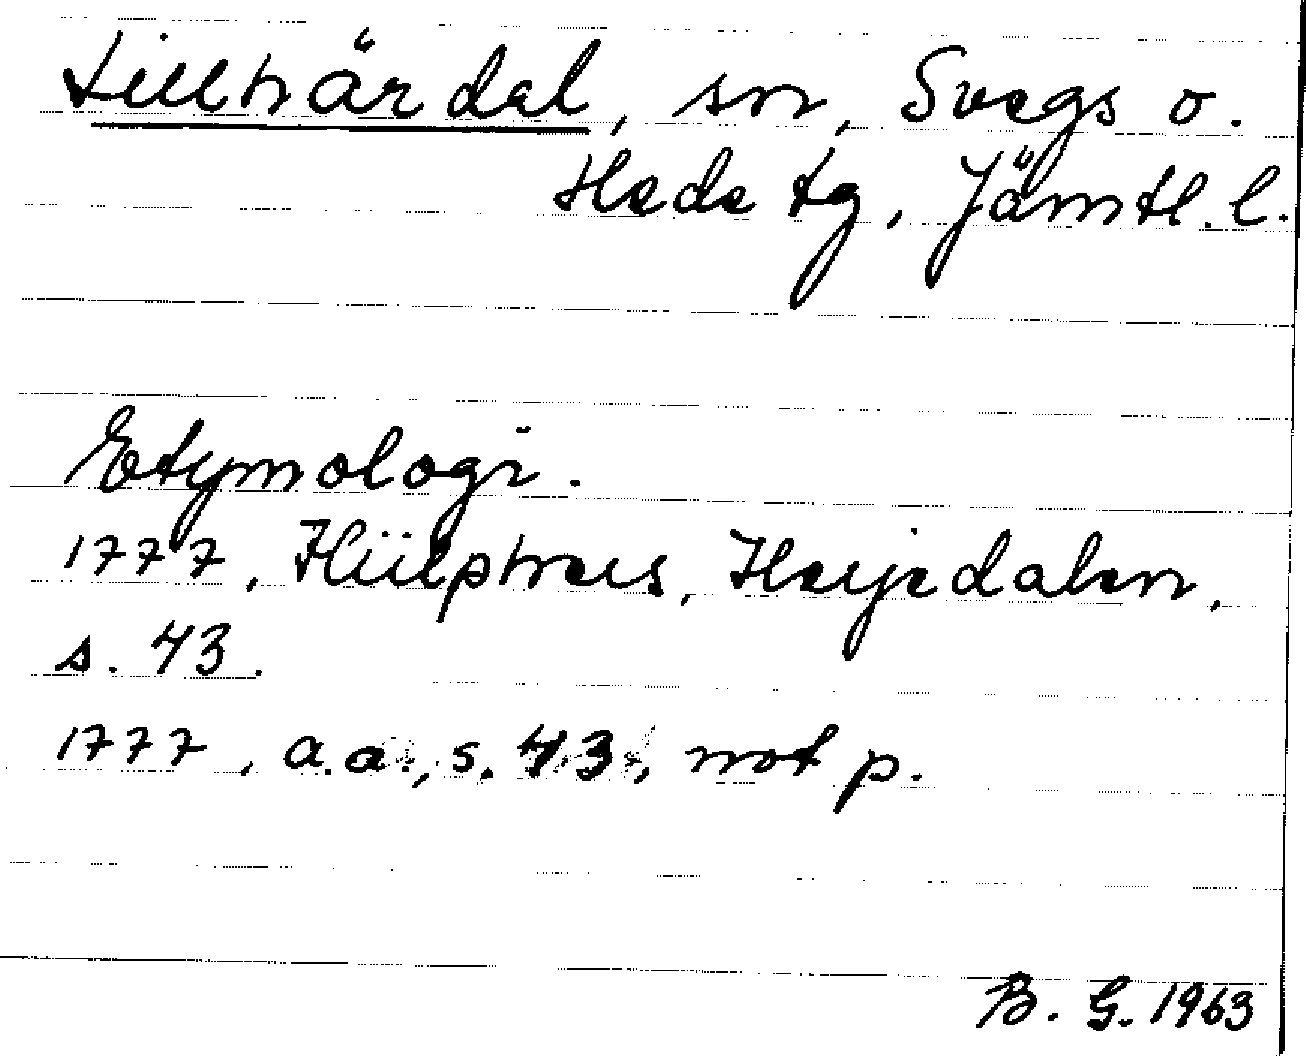 Lillhärdal, sn, Svegs o.
Hede tg, Jämtl. l.
Etymologi.
1777, Hülphers, Herjedalen,
s. 43.
1777, a.a., s. 43, not p.
B. G. 1963